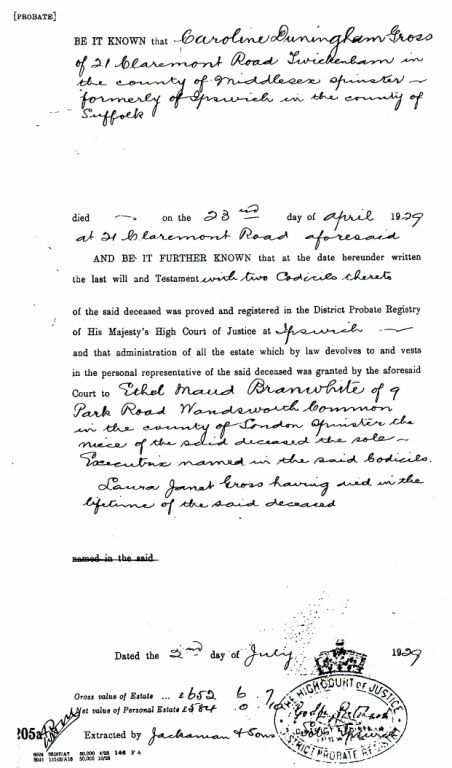 [PROBATE]
BE IT KNOWN that Caroline Duningham Gross
of 21 Claremont Road Twickenham in
the county of Middlesex spinster —
formerly of Ipswich in the county of
Suffolk
died — on the 23nd day of April 1929
at 21 Claremont Road aforesaid
AND BE IT FURTHER KNOWN that at the date hereunder written
the last will and Testament with two Codicils thereto
of the said deceased was proved and registered in the District Probate Registry
of His Majesty's High Court of Justice at Ipswich —
and that administration of all the estate which by law devolves to and vests
in the personal representative of the said deceased was granted by the aforesaid
Court to Ethel Maud Branwhite of 9
Park Road Wandsworth Common
in the county of London Spinster the
niece of the said deceased the sole —
Executrix named in the said Codicils.
Laura Janet Gross having died in the
lifetime of the said deceased
named in the said
Dated the 2nd day of July 1929
Gross value of Estate ... £652 6. 7
Net value of Personal Estate £584 0
205a
Extracted by Jackaman & Sons
THE HIGH COURT OF JUSTICE
DISTRICT PROBATE REGISTRY
146 F A